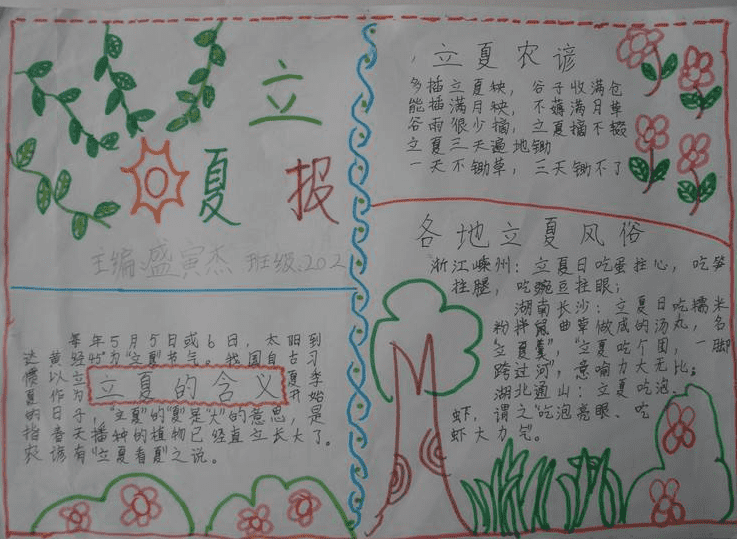 立
夏 报
主编 盛寅杰 班级:202
每年5月5日或6日，太阳到
达黄经45°为"立夏"节气。我国自古习
惯以立
立夏的含义
夏作为
夏开
季
的日子，"立夏"的"夏"是"大"的意思，是
始
指春天播种的植物已经直立长大了。
农谚有"立夏看夏"之说。
立夏农谚
多插立夏秧，谷子收满仓
能插满月秧，不薅满月草
谷雨很少摘，立夏摘不辍
立夏三天遍地锄
一天不锄草，三天锄不了
各地立夏风俗
浙江嵊州：立夏日吃蛋拄心，吃笋
拄腿，吃豌豆拄眼；
湖南长沙：立夏日吃糯米
粉拌鼠曲草做成的汤丸，名
"立夏羹"，"立夏吃个团，一脚
跨过河"，意喻力大无比。
湖北通山：立夏吃泡、
虾，谓之"吃泡亮眼、吃
虾大力气。